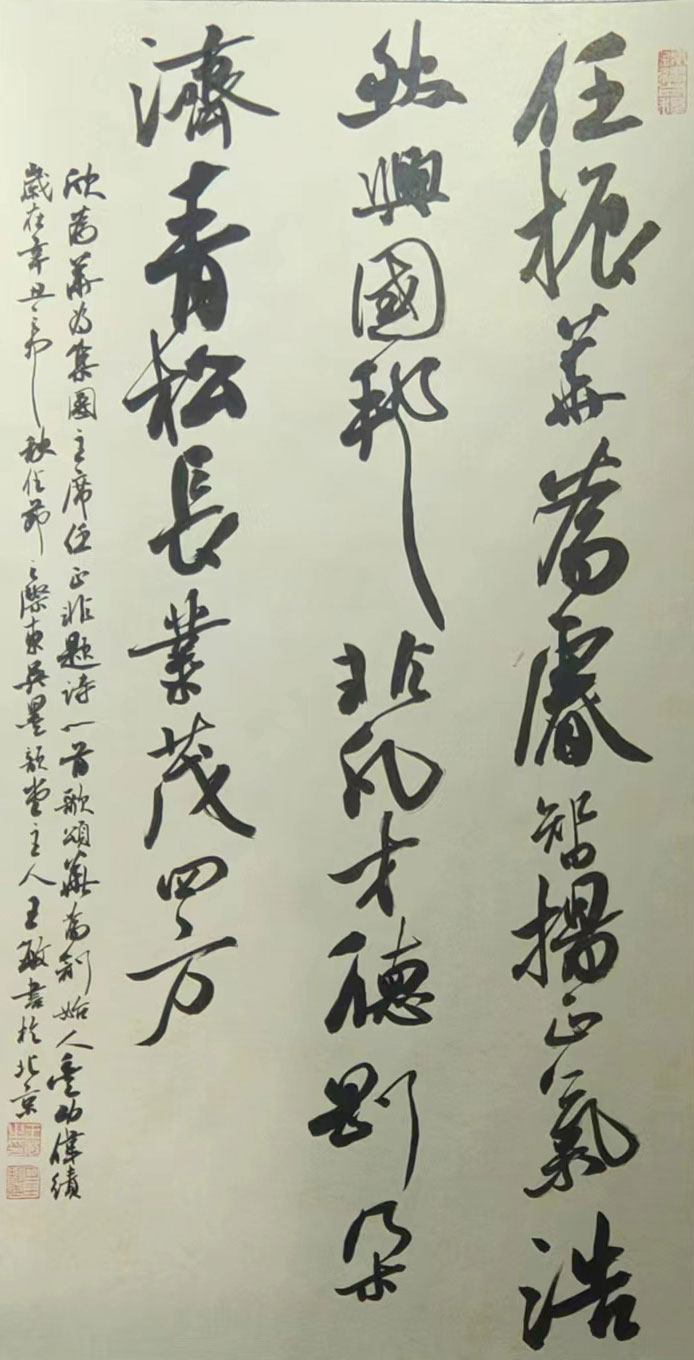 任振華為睿智揚正氣浩
然興國邦非凡才德剛柔
濟青松長業茂四方
欣為華為集團主席任正非題诗一首歌頌華為創始人豐功偉績
歲在辛丑之秋佳節之際東吳墨韻堂主人王敏書於北京